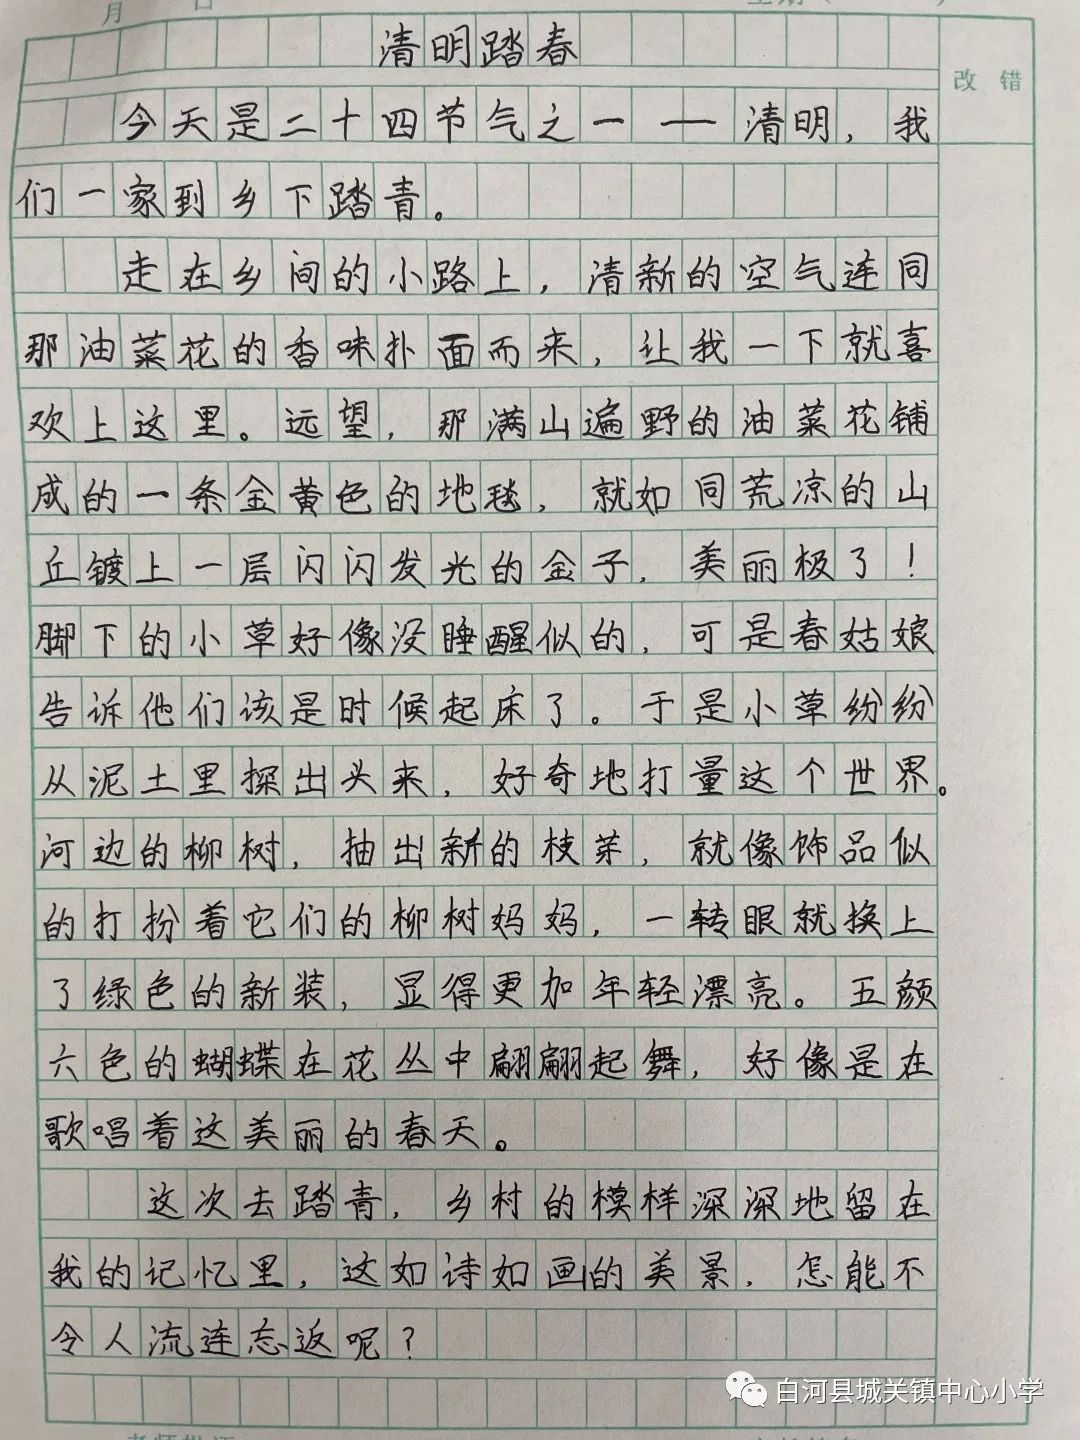 月 日
清明踏春
改 错
今天是二十四节气之一——清明，我
们一家到乡下踏青。
走在乡间的小路上，清新的空气连同
那油菜花的香味扑面而来，让我一下就喜
欢上这里。远望，那满山遍野的油菜花铺
成的一条金黄色的地毯，就如同荒凉的山
丘镀上一层闪闪发光的金子，美丽极了！
脚下的小草好像没睡醒似的，可是春姑娘
告诉他们该是时候起床了。于是小草纷纷
从泥土里探出头来，好奇地打量这个世界。
河边的柳树，抽出新的枝芽，就像饰品似
的打扮着它们的柳树妈妈，一转眼就换上
了绿色的新装，显得更加年轻漂亮。五颜
六色的蝴蝶在花丛中翩翩起舞，好像是在
歌唱着这美丽的春天。
这次去踏青，乡村的模样深深地留在
我的记忆里，这如诗如画的美景，怎能不
令人流连忘返呢？
白河县城关镇中心小学